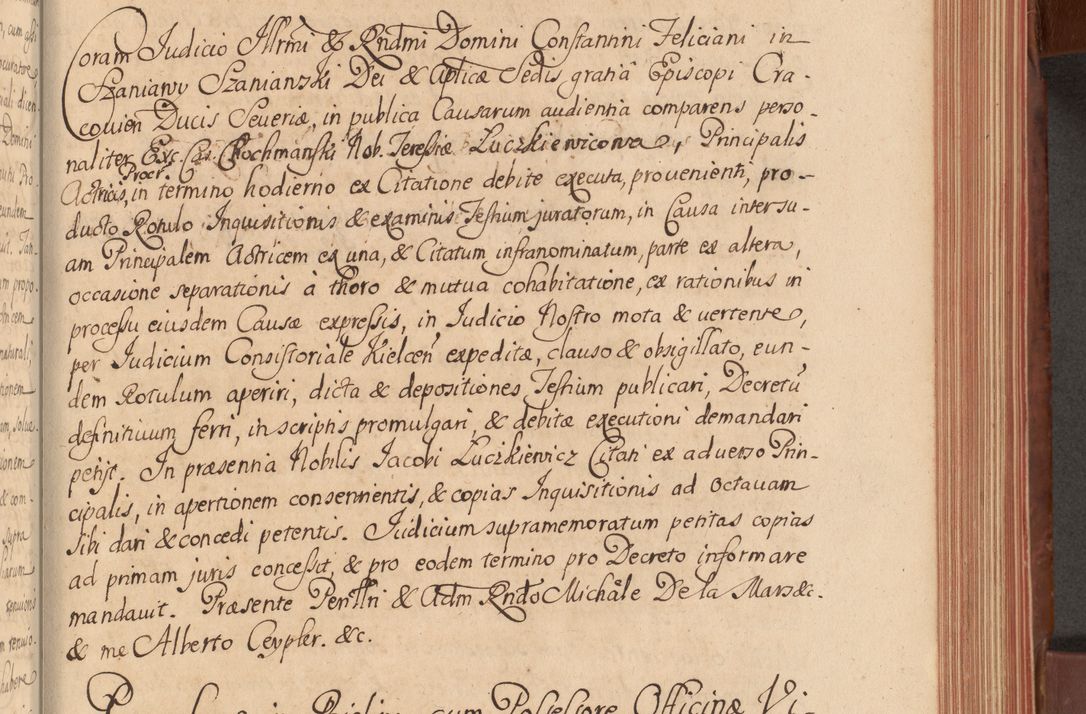 Coram Judicio Illrmi & Rndmi Domini Constantini Feliciani in
Szaniawy Szanianski Dei & Aplicæ Sedis gratiâ Episcopi Cra-
covien Ducis Severiæ, in publica Causarum audientia comparens perso-
naliter Exc. Cas. Chochmanski Nob. Teresiæ Luczkiewicowa, Principalis
Actricis, Procr. in termino hodierno ex Citatione debite executa, provenienti, pro-
ducto Rotulo Inquisitionis & examinis Testium juratorum, in Causa inter su-
am Principalem Actricem ex una, & Citatum infranominatum, parte ex altera,
occasione separationis à thoro & mutua cohabitatione, ex rationibus in
processu eiusdem Causæ expressis, in Judicio Nostro mota & vertente,
per Judicium Consistoriale Kielcen expeditæ, clauso & obsigillato, eun-
dem Rotulum aperiri, dicta & depositiones Testium publicari, Decretū
definitivum ferri, in scriptis promulgari, & debitæ executioni demandari
petijt. In præsentia Nobilis Jacobi Luczkiewicz Citati ex adverso Prin-
cipalis, in apertionem consentientis, & copias Inquisitionis ad octavam
sibi dari & concedi petentis. Judicium supramemoratum petitas copias
ad primam juris concessit, & pro eodem termino pro Decreto informare
mandavit. Præsente Perillri & Adm Rndo Michăle De la Mars &c.
& me Alberto Ceypler. &c.
cum Possessore Officinæ Vi-